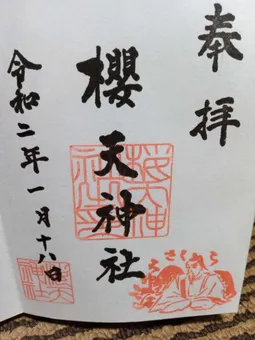 奉拝
櫻天神社
令和二年一月十八日
さくら